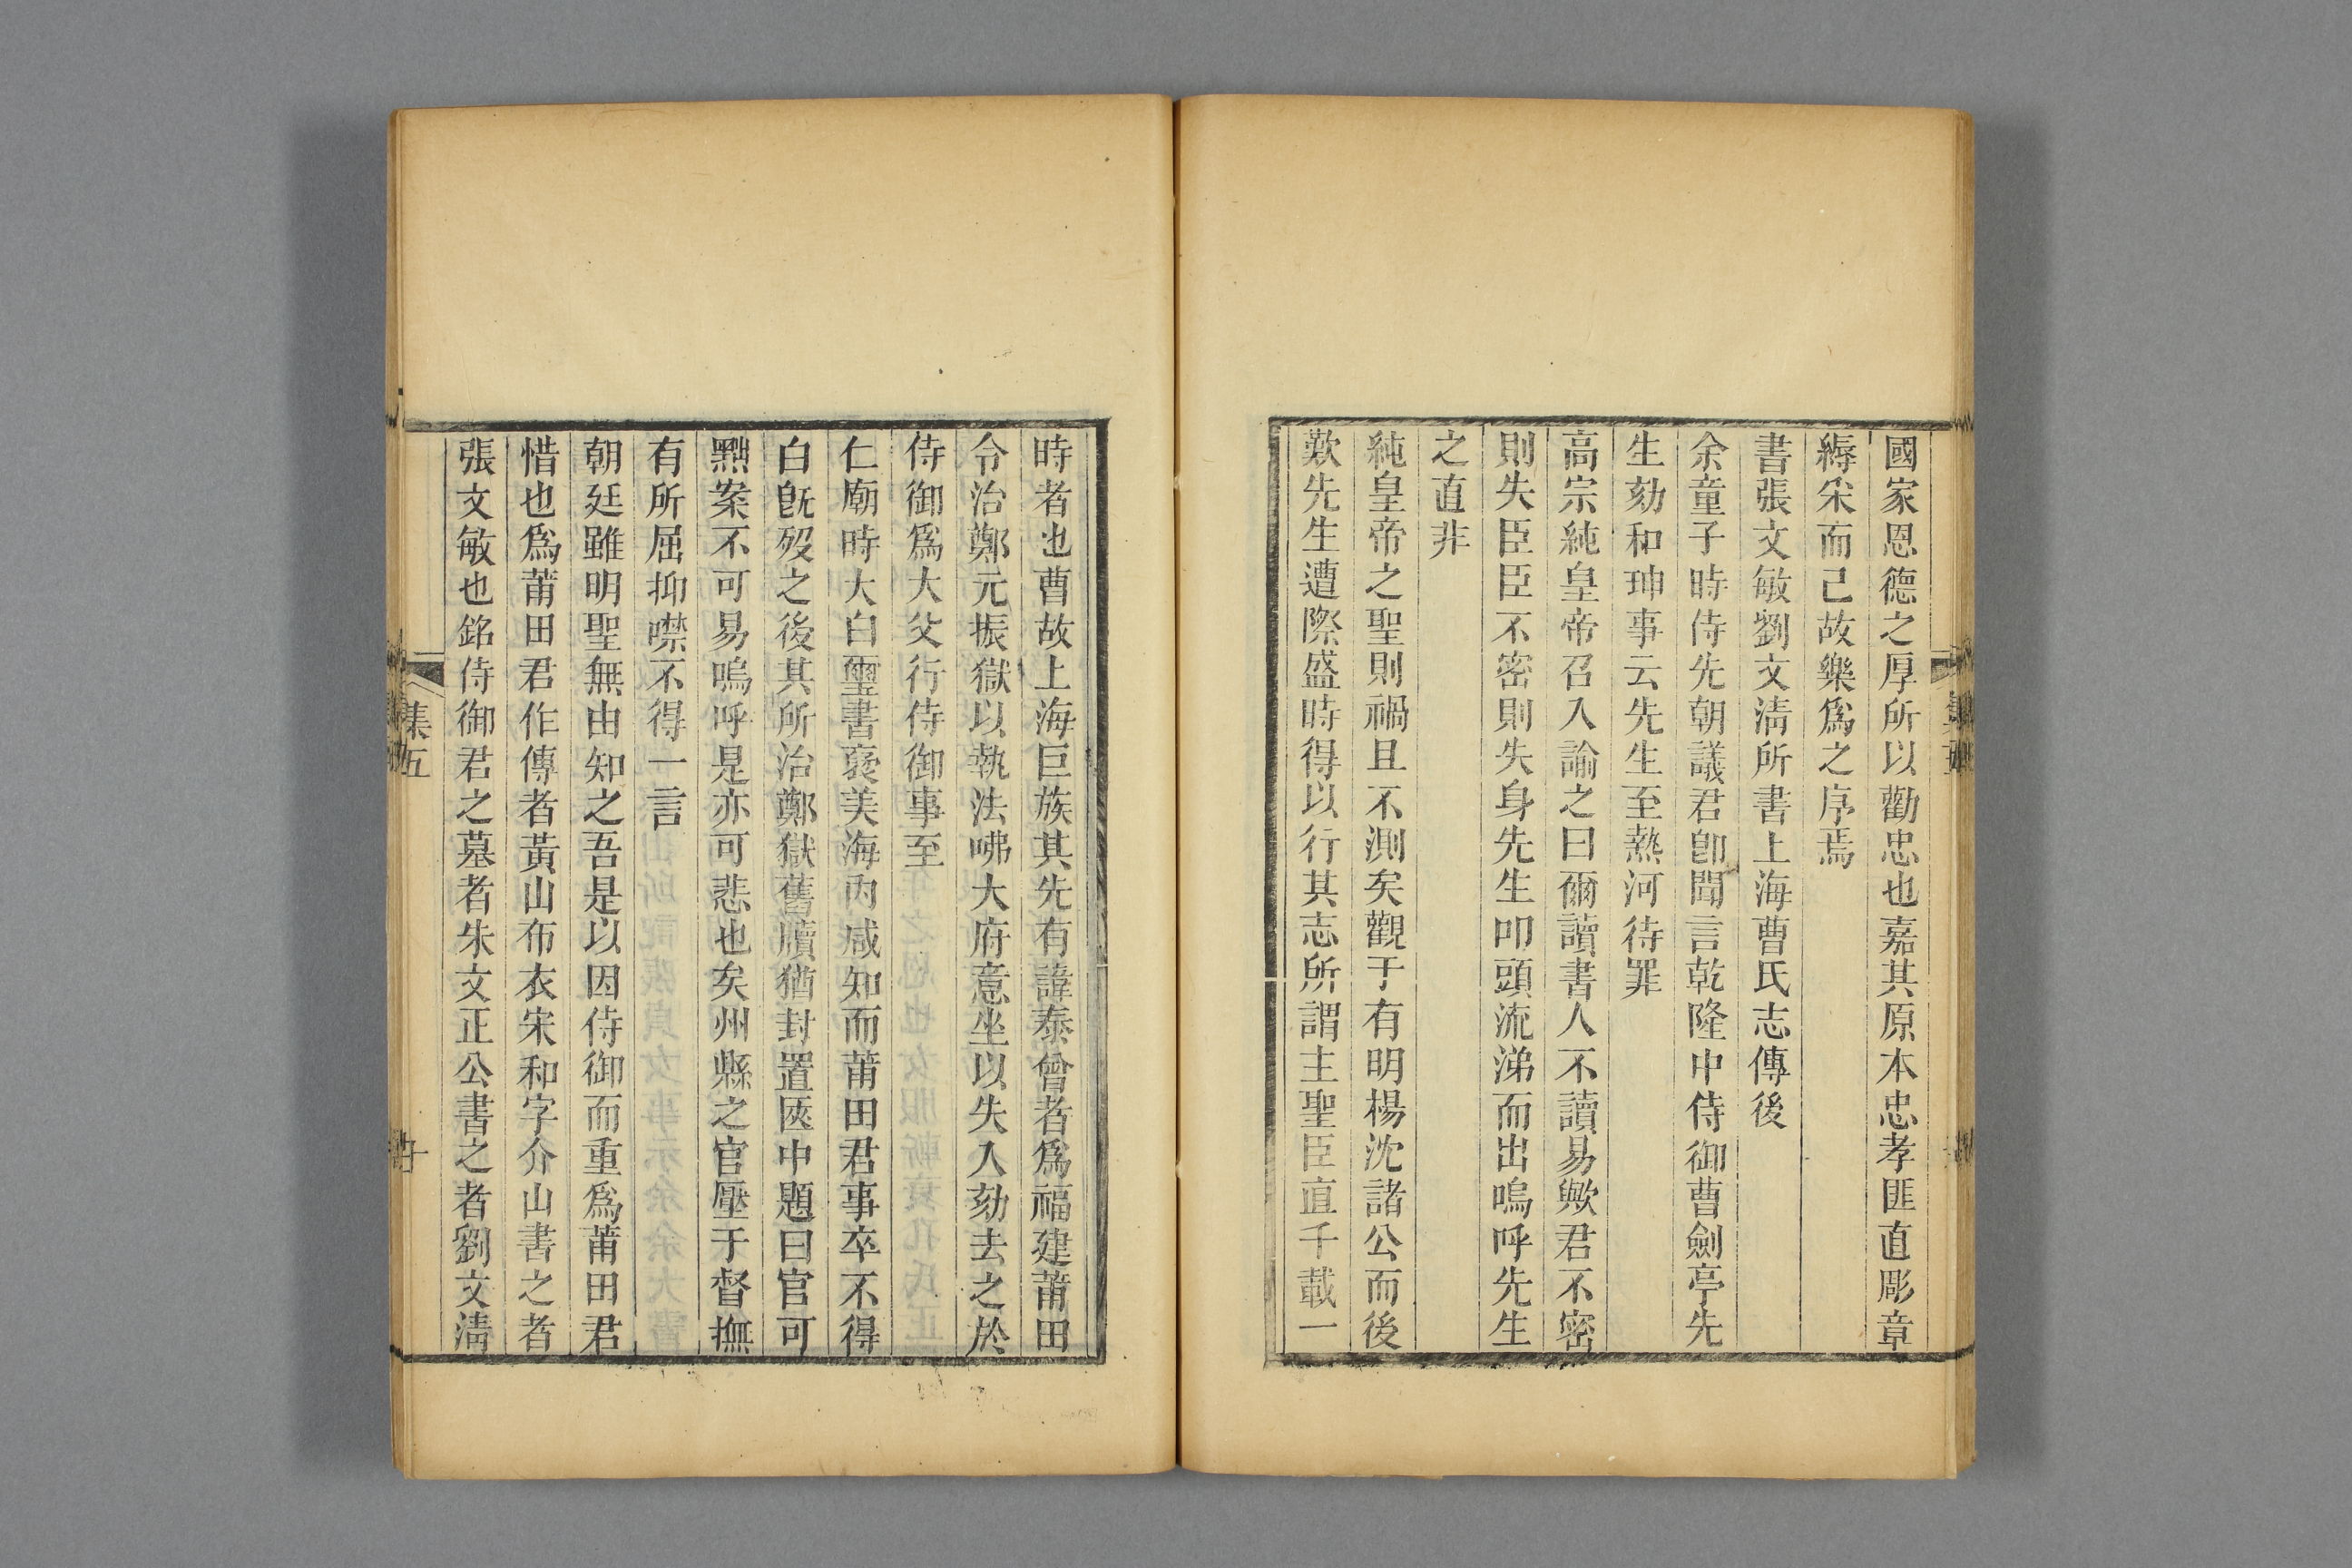 國家恩德之厚所以勸忠也嘉其原本忠孝匪直彫章
縟采而已故樂爲之序焉
書張文敏劉文清所書上海曹氏志傳後
余童子時侍先朝議君卽聞言乾隆中侍御曹劍亭先
生劾和珅事云先生至熱河待罪
高宗純皇帝召入諭之曰爾讀書人不讀易歟君不密
則失臣臣不密則失身先生叩頭流涕而出嗚呼先生
之直非
純皇帝之聖則禍且不測矣觀于有明楊沈諸公而後
歎先生遭際盛時得以行其志所謂主聖臣直千載一
時者也曹故上海巨族其先有諱泰曾者爲福建莆田
令治鄭元振獄以執法咈大府意坐以失入劾去之於
侍御爲大父行侍御事至
仁廟時大白璽書褒美海內咸知而莆田君事卒不得
白旣歿之後其所治鄭獄舊牘猶封置匧中題曰官可
黜案不可易嗚呼是亦可悲也矣州縣之官壓于督撫
有所屈抑噤不得一言
朝廷雖明聖無由知之吾是以因侍御而重爲莆田君
惜也爲莆田君作傳者黃山布衣宋和字介山書之者
張文敏也銘侍御君之墓者朱文正公書之者劉文清
集五
十